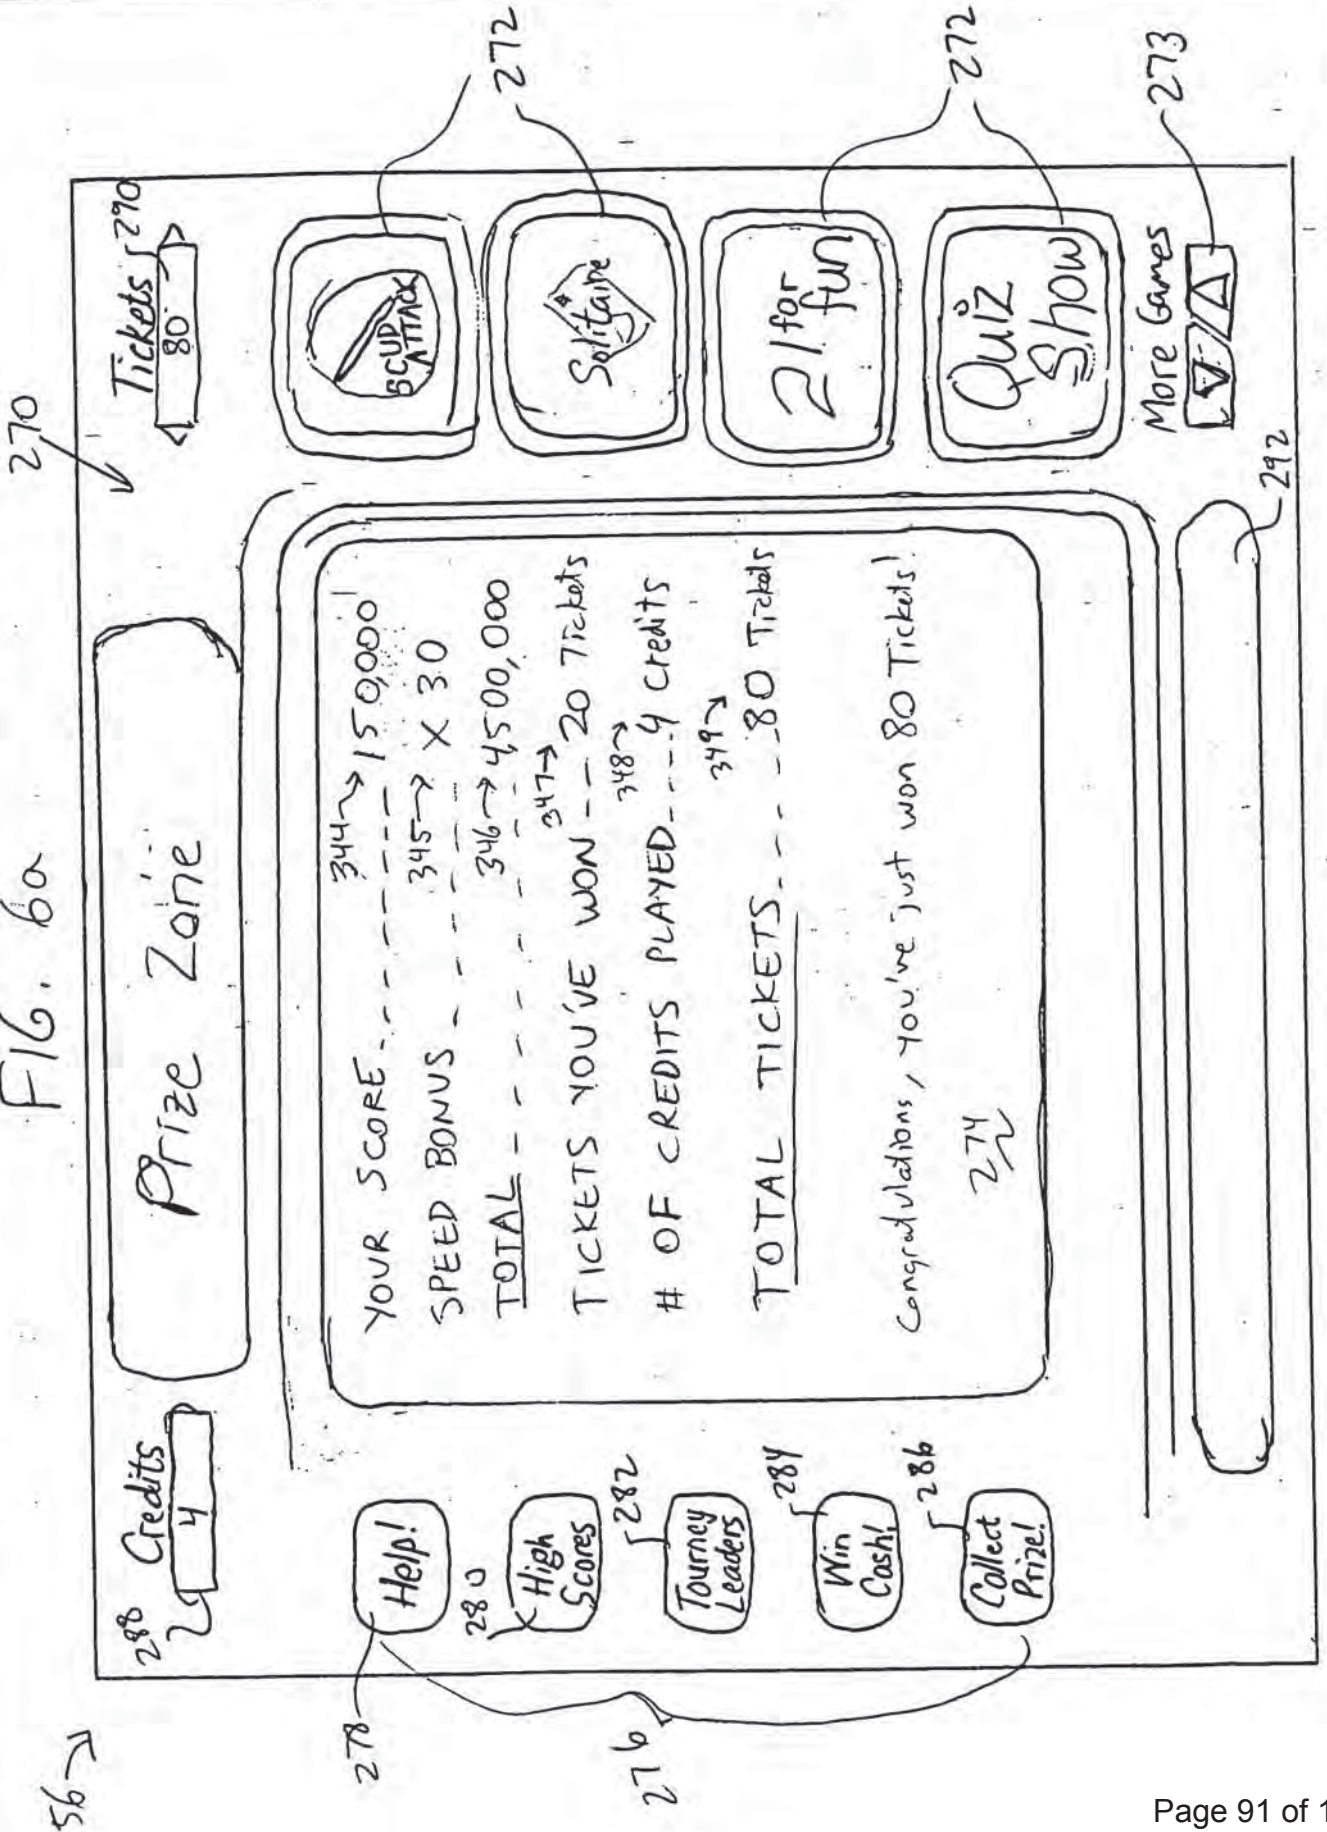 FIG. 6a
56
270
288
Credits
4
Prize Zone
Tickets
290
80
278
Help!
280
High
Scores
282
Tourney
Leaders
284
Win
Cash!
286
Collect
Prize!
276
YOUR SCORE 344 150,000
SPEED BONUS 345 X 30
TOTAL 346 4,500,000
347
TICKETS YOU'VE WON 20 Tickets
348
# OF CREDITS PLAYED 4 Credits
349
TOTAL TICKETS 80 Tickets
Congratulations, you've just won 80 Tickets!
274
SCUD
ATTACK
Solitaire
272
21 for
fun
Quiz
Show
272
More Games
273
292
Page 91 of 1